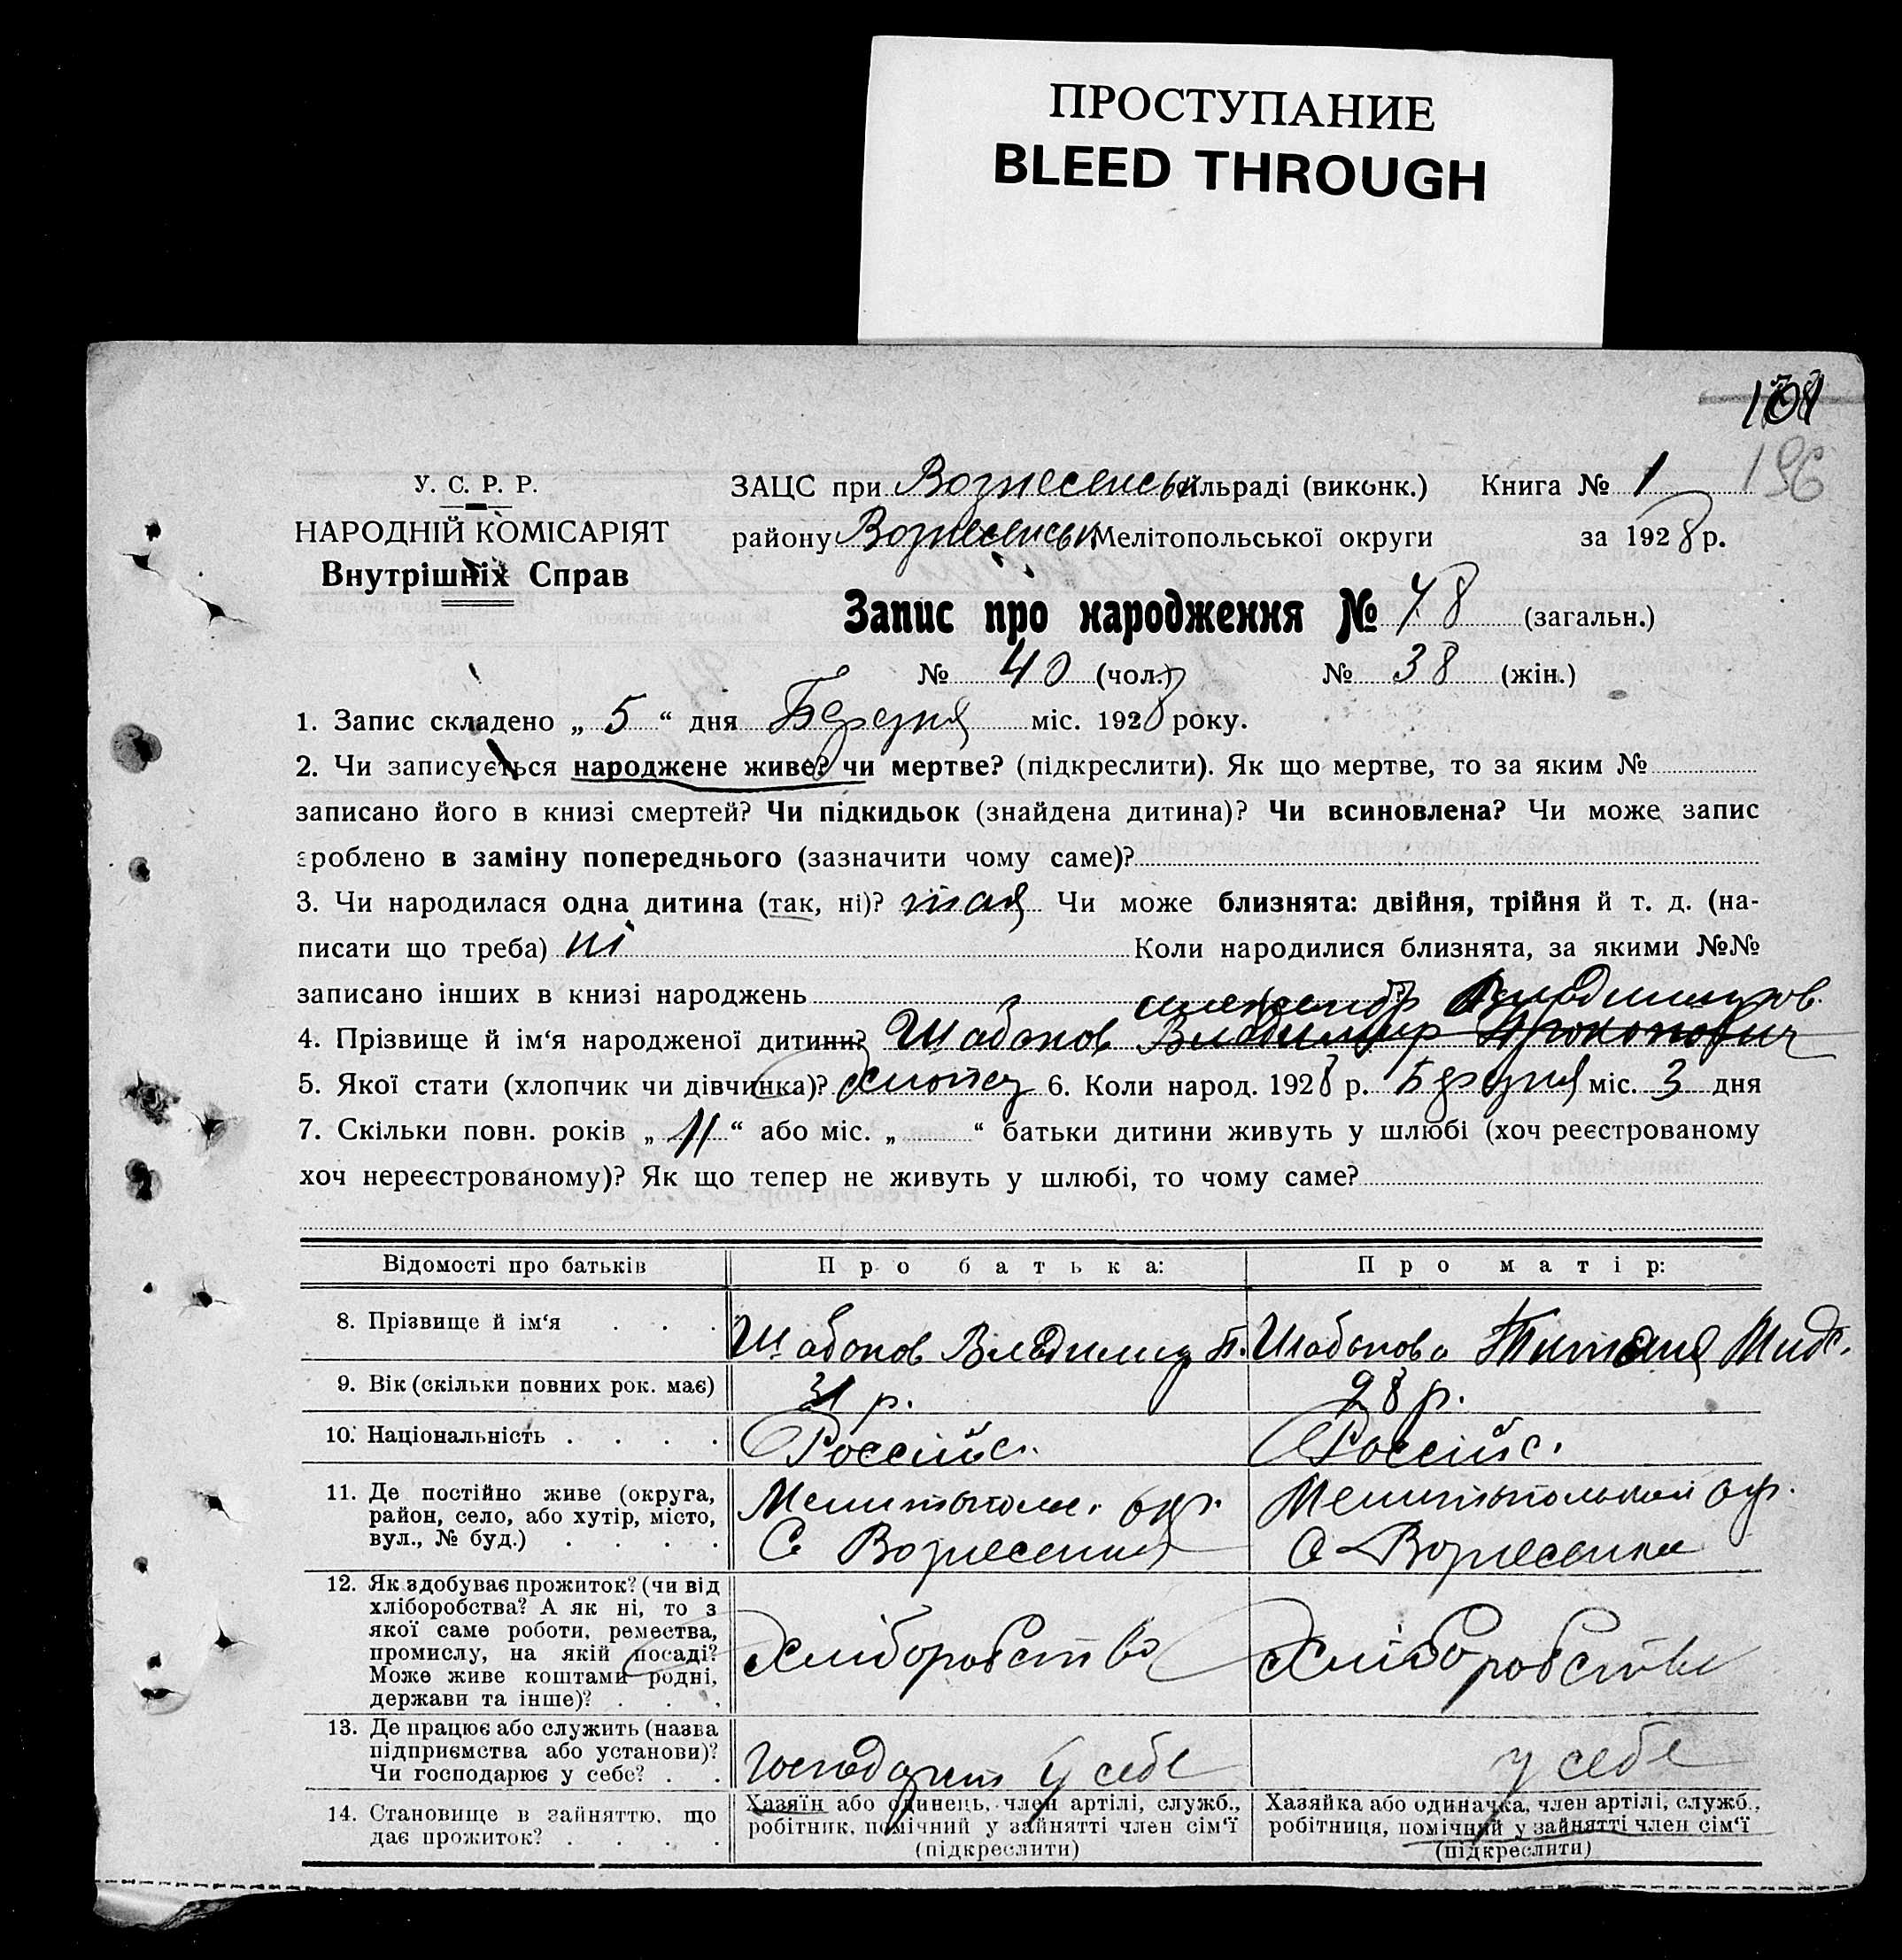 ПРОСТУПАНИЕ
BLEED THROUGH
181
196
У. С. Р. Р.
НАРОДНІЙ КОМІСАРІЯТ
Внутрішніх Справ
ЗАЦС при Вознесенськ сільраді (виконк.) Книга № 1
району Вознесенськ Мелітопольської округи за 1928 р.
Запис про народження № 78 (загальн.)
№ 40 (чол.) № 38 (жін.)
1. Запис складено „ 5 “ дня Березня міс. 1928 року.
2. Чи записується народжене живе? чи мертве? (підкреслити). Як що мертве, то за яким №
записано його в книзі смертей? Чи підкидьок (знайдена дитина)? Чи всиновлена? Чи може запис
зроблено в заміну попереднього (зазначити чому саме)?
3. Чи народилася одна дитина (так, ні)? так Чи може близнята: двійня, трійня й т. д. (на-
писати що треба) ні Коли народилися близнята, за якими №№
записано інших в книзі народжень
4. Прізвище й ім‘я народженої дитини? Шабанов Владимир Прокопович
5. Якої стати (хлопчик чи дівчинка)? Хлопец 6. Коли народ. 1928 р. Березня міс. 3 дня
7. Скільки повн. років „ 11 “ або міс. „ “ батьки дитини живуть у шлюбі (хоч реєстрованому
хоч нереєстрованому)? Як що тепер не живуть у шлюбі, то чому саме?
Відомості про батьків Про батька: Про матір:
8. Прізвище й ім‘я Шабанов Владимир П. Шабанова
9. Вік (скільки повних рок. має) 31 р. 28 р.
10. Національність Россійс. Россійс.
11. Де постійно живе (округа,
район, село, або хутір, місто,
вул., № буд.)
Мелитопол. окр. Мелитопольской окр.
С Вознесенка С Вознесенка
12. Як здобуває прожиток? (чи від
хліборобства? А як ні, то з
якої саме роботи, ремества,
промислу, на якій посаді?
Може живе коштами родні,
держави та інше)?
Хліборобство Хліборобство
13. Де працює або служить (назва
підприємства або установи)?
Чи господарює у себе?
Господарит у себе у себе
14. Становище в зайняттю, що
дає прожиток?
Хазяїн або одинець, член артілі, служб.,
робітник, помічний у зайнятті член сім‘ї
(підкреслити)
Хазяйка або одиначка, член артілі, служб.,
робітниця, помічний у зайнятті член сім‘ї
(підкреслити)